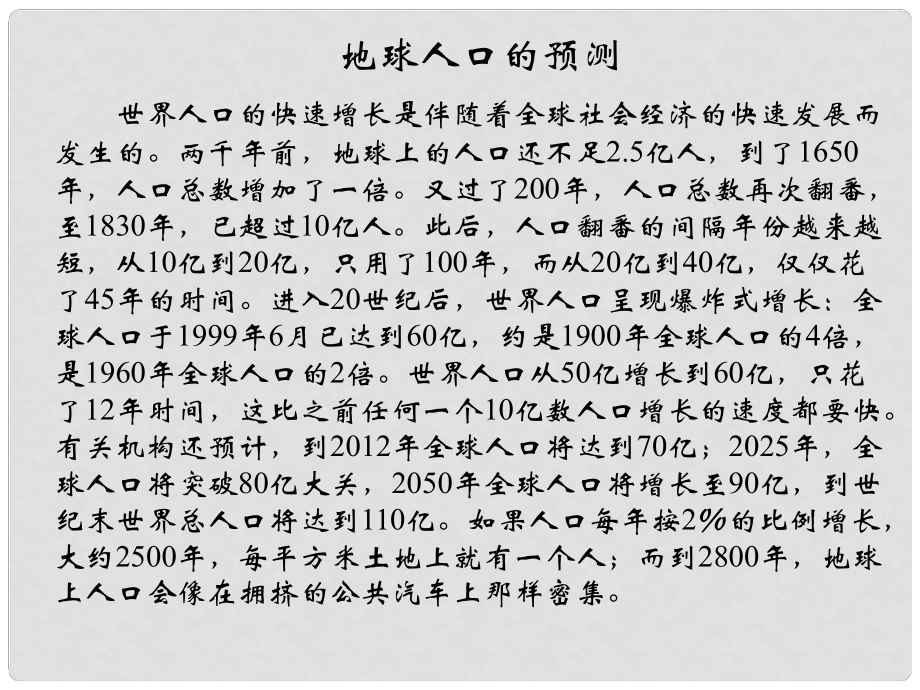 地球人口的预测
世界人口的快速增长是伴随着全球社会经济的快速发展而
发生的。两千年前，地球上的人口还不足2.5亿人，到了1650
年，人口总数增加了一倍。又过了200年，人口总数再次翻番，
至1830年，已超过10亿人。此后，人口翻番的间隔年份越来越
短，从10亿到20亿，只用了100年，而从20亿到40亿，仅仅花
了45年的时间。进入20世纪后，世界人口呈现爆炸式增长：全
球人口于1999年6月已达到60亿，约是1900年全球人口的4倍，
是1960年全球人口的2倍。世界人口从50亿增长到60亿，只花
了12年时间，这比之前任何一个10亿数人口增长的速度都要快。
有关机构还预计，到2012年全球人口将达到70亿；2025年，全
球人口将突破80亿大关，2050年全球人口将增长至90亿，到世
纪末世界总人口将达到110亿。如果人口每年按2%的比例增长，
大约2500年，每平方米土地上就有一个人；而到2800年，地球
上人口会像在拥挤的公共汽车上那样密集。